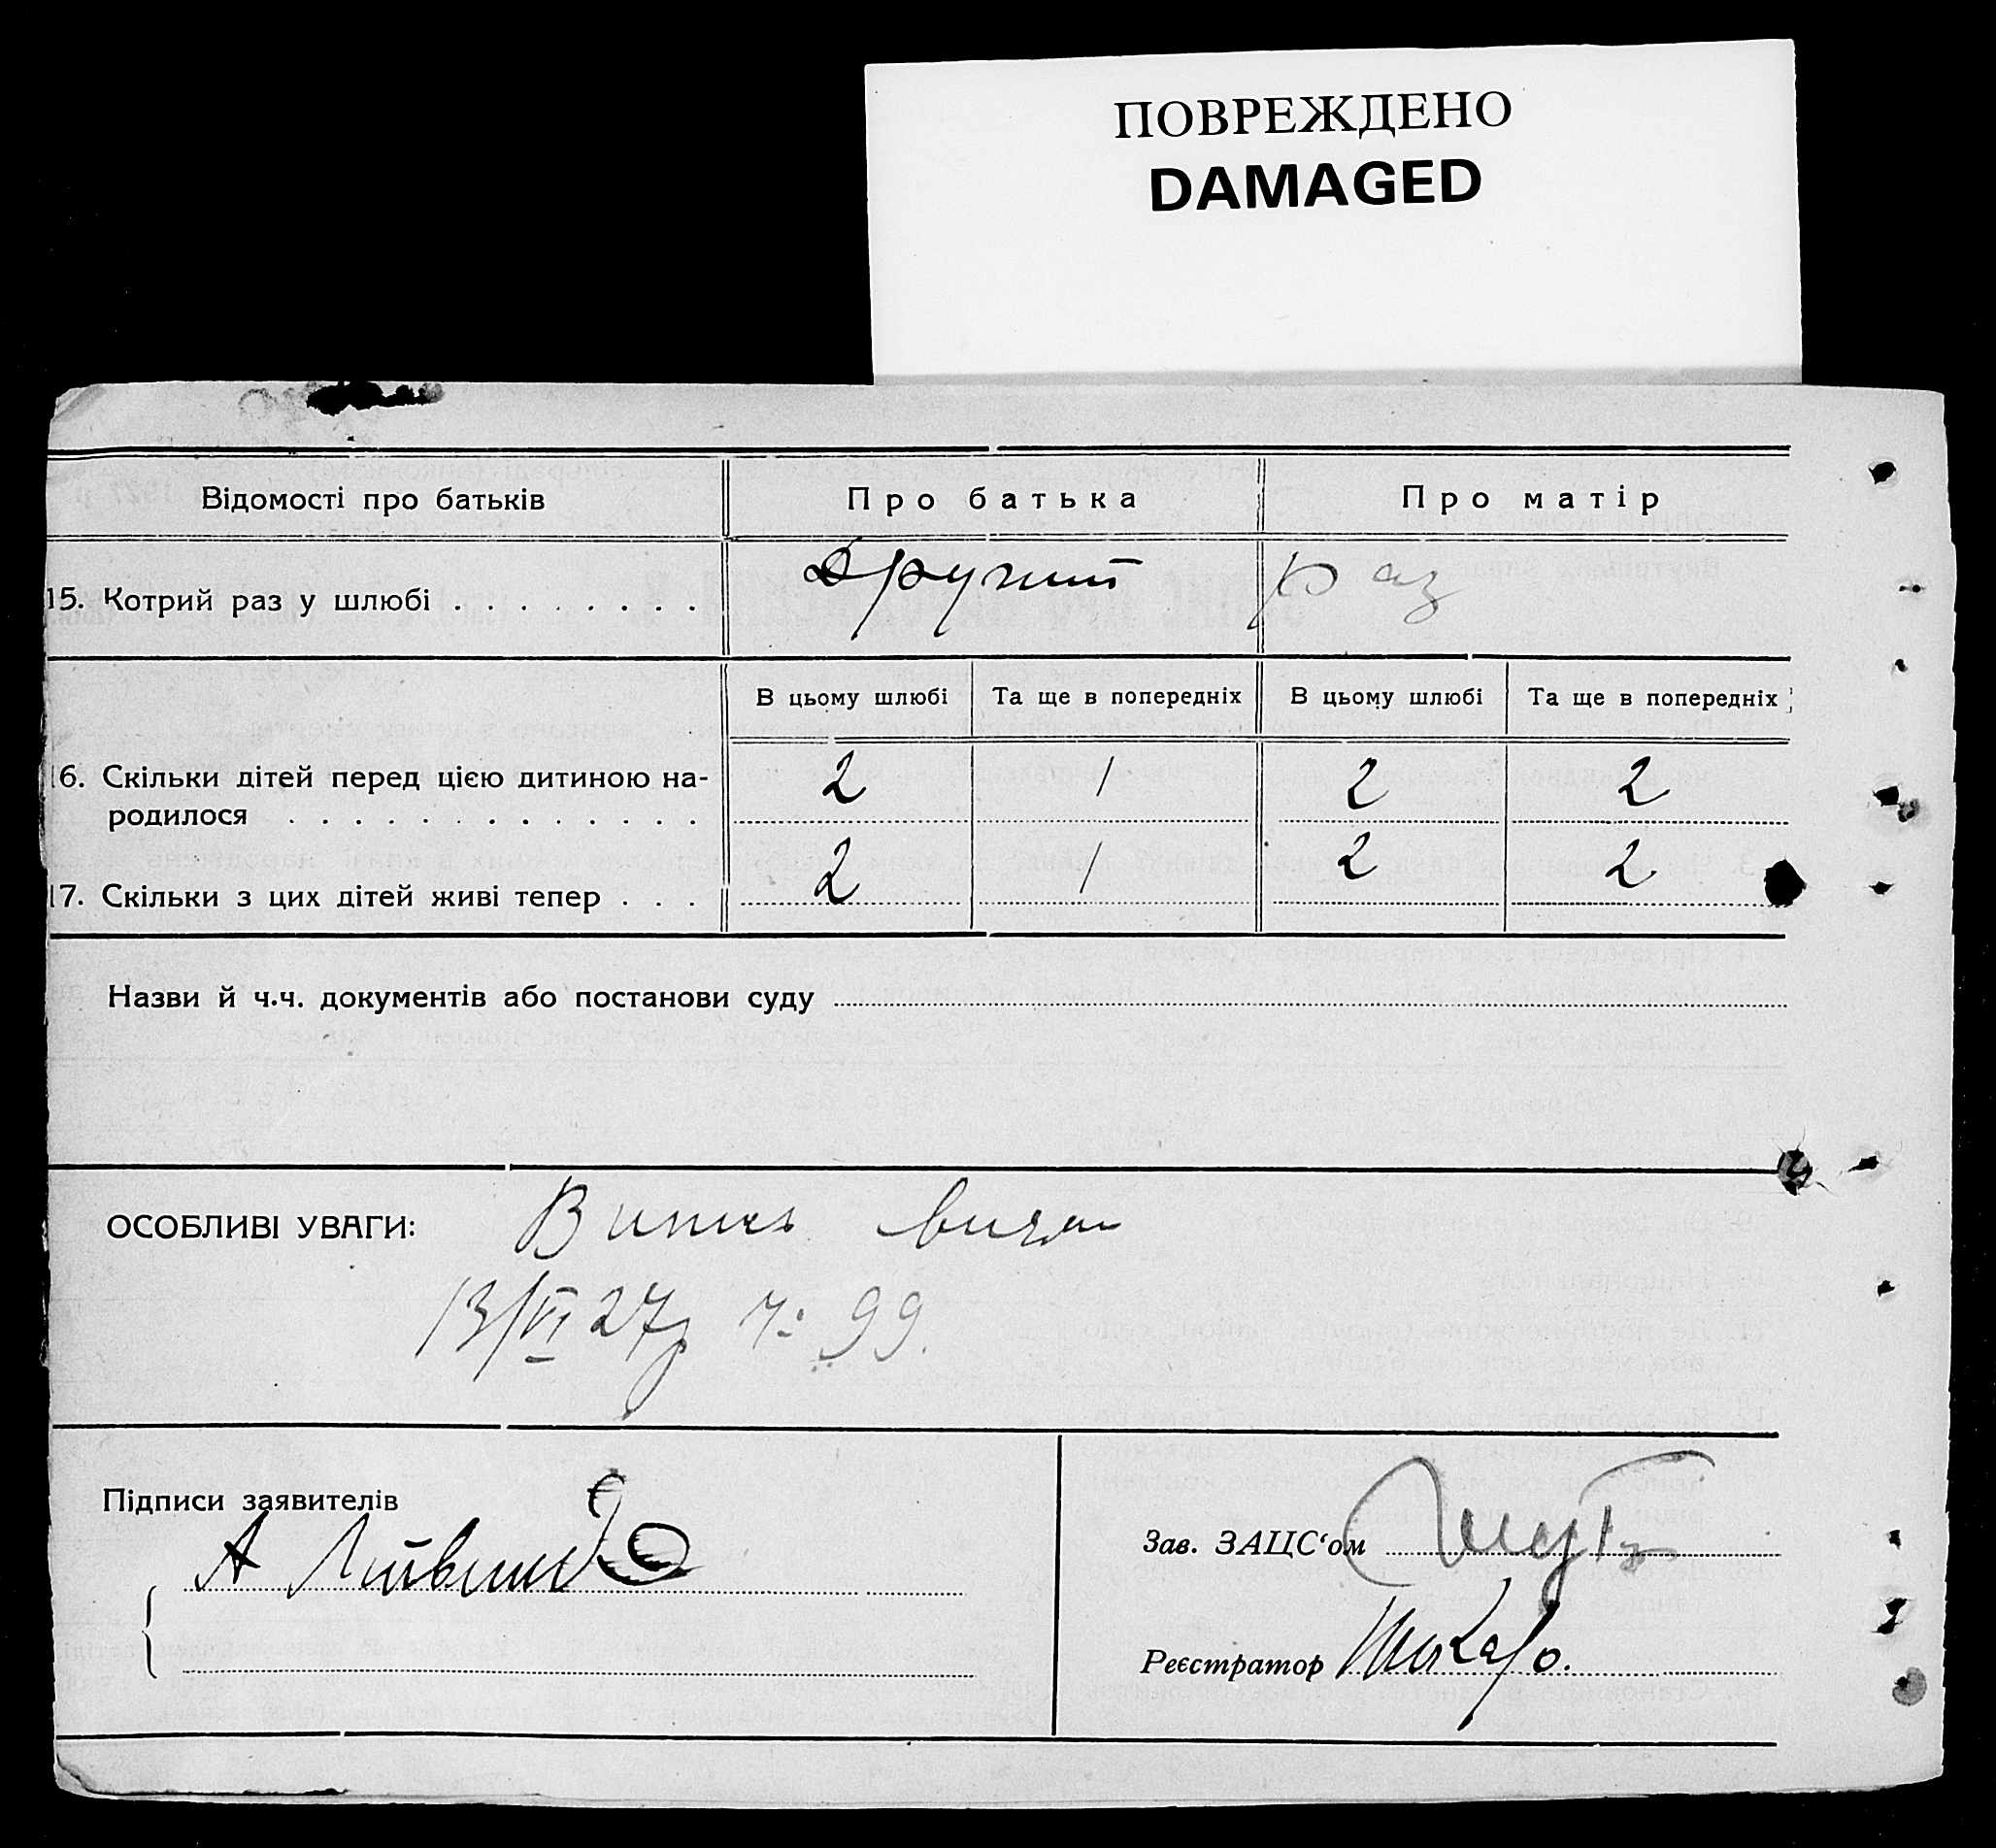 ПОВРЕЖДЕНО
DAMAGED
Відомості про батьків
Про батька
Про матір
15. Котрий раз у шлюбі
другий раз
В цьому шлюбі
Та ще в попередніх
В цьому шлюбі
Та ще в попередніх
16. Скільки дітей перед цією дитиною на-
родилося
2 1 2 2
17. Скільки з цих дітей живі тепер
2 1 2 2
Назви й ч.ч. документів або постанови суду
ОСОБЛИВІ УВАГИ:
13/VI 27 99.
Підписи заявителів
А
Зав. ЗАЦС‘ом
Реєстратор